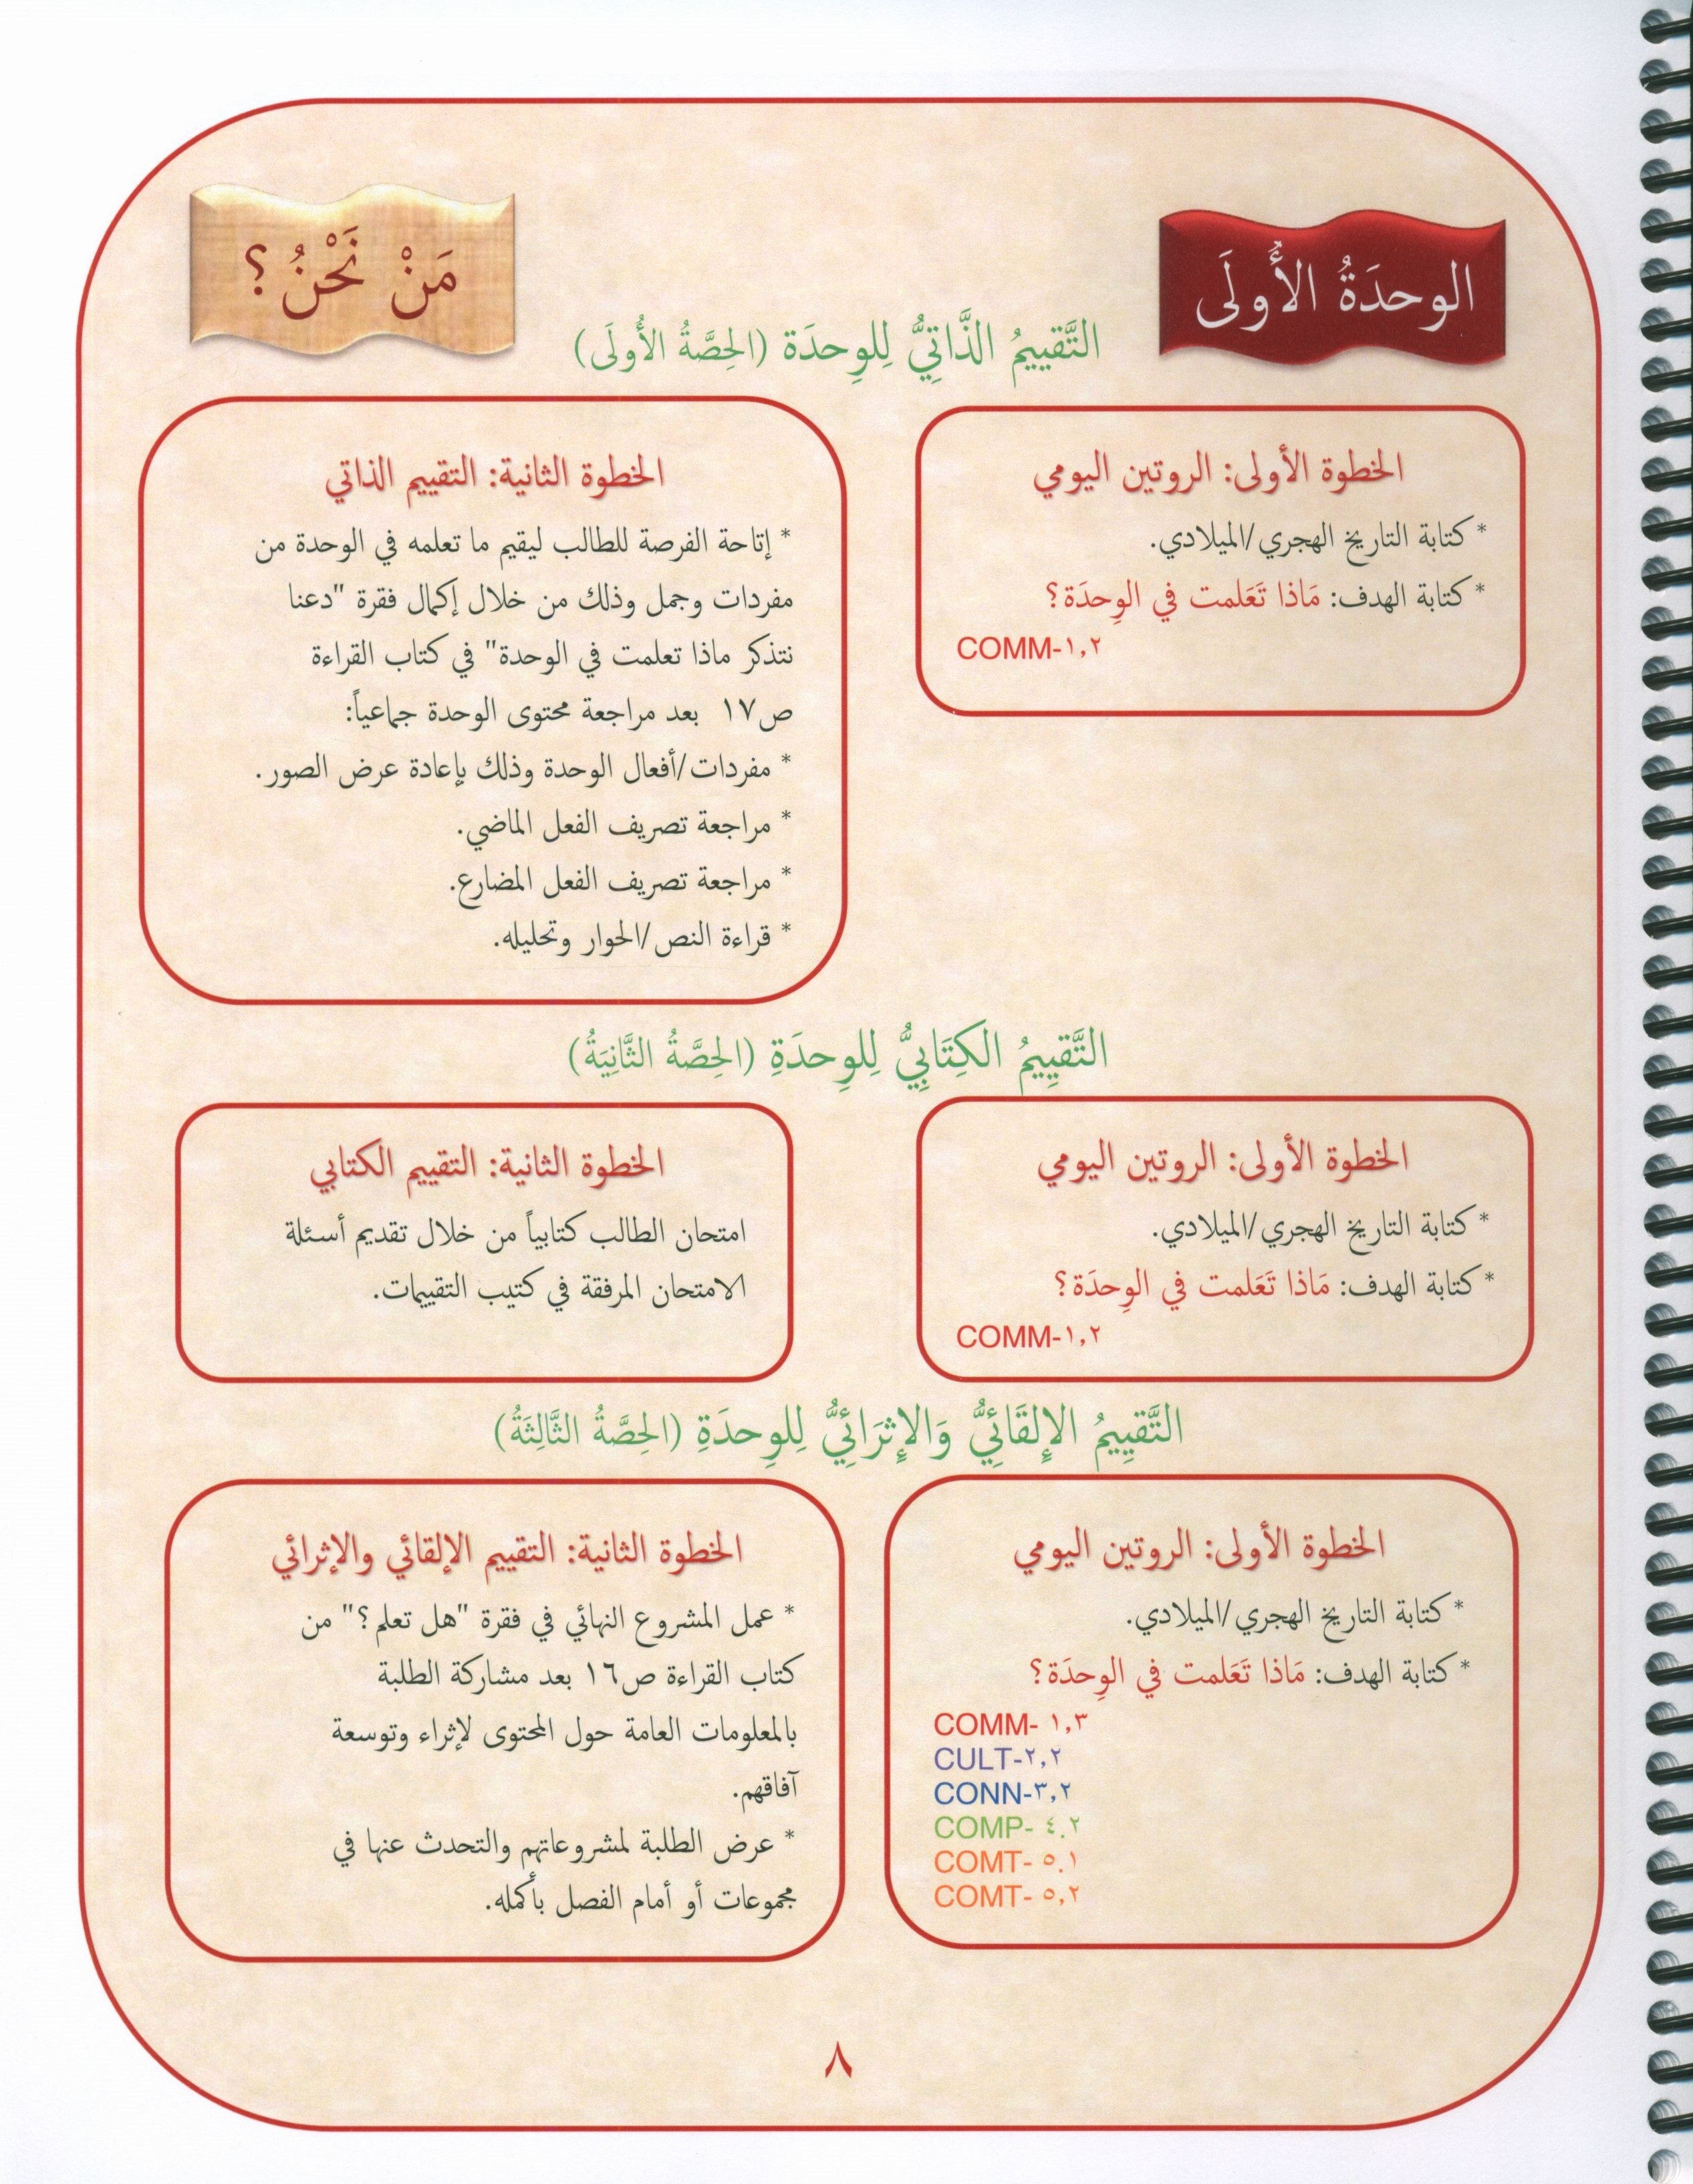 الوحدَةُ الأُولَى
مَنْ نَحْنُ؟
التَّقييمُ الذَّاتِيُّ لِلوِحدَة (الحِصَّةُ الأُولَى)
الخطوة الأولى: الروتين اليومي
* كتابة التاريخ الهجري/الميلادي.
* كتابة الهدف: مَاذا تَعَلمت في الوِحدَة؟
COMM-١,٢
الخطوة الثانية: التقييم الذاتي
* إتاحة الفرصة للطالب ليقيم ما تعلمه في الوحدة من
مفردات وجمل وذلك من خلال إكمال فقرة "دعنا
نتذكر ماذا تعلمت في الوحدة" في كتاب القراءة
ص١٧ بعد مراجعة محتوى الوحدة جماعياً:
* مفردات/أفعال الوحدة وذلك بإعادة عرض الصور.
* مراجعة تصريف الفعل الماضي.
* مراجعة تصريف الفعل المضارع.
* قراءة النص/الحوار وتحليله.
التَّقيِيمُ الكِتَابِيُّ لِلوِحدَةِ (الحِصَّةُ الثَّانِيَةُ)
الخطوة الأولى: الروتين اليومي
* كتابة التاريخ الهجري/الميلادي.
* كتابة الهدف: مَاذا تَعَلمت في الوِحدَة؟
COMM-١,٢
الخطوة الثانية: التقييم الكتابي
امتحان الطالب كتابياً من خلال تقديم أسئلة
الامتحان المرفقة في كتيب التقييمات.
التَّقيِيمُ الإلقَائِيُّ وَالإِثرَائِيُّ لِلوِحدَةِ (الحِصَّةُ الثَّالِثَةُ)
الخطوة الأولى: الروتين اليومي
* كتابة التاريخ الهجري/الميلادي.
* كتابة الهدف: مَاذا تَعَلمت في الوِحدَة؟
COMM- ١,٣
CULT-٢,٢
CONN-٣,٢
COMP- ٤.٢
COMT- ٥.١
COMT- ٥,٢
الخطوة الثانية: التقييم الإلقائي والإثرائي
* عمل المشروع النهائي في فقرة "هل تعلم؟" من
كتاب القراءة ص١٦ بعد مشاركة الطلبة
بالمعلومات العامة حول المحتوى لإثراء وتوسعة
آفاقهم.
* عرض الطلبة لمشروعاتهم والتحدث عنها في
مجموعات أو أمام الفصل بأكمله.
٨